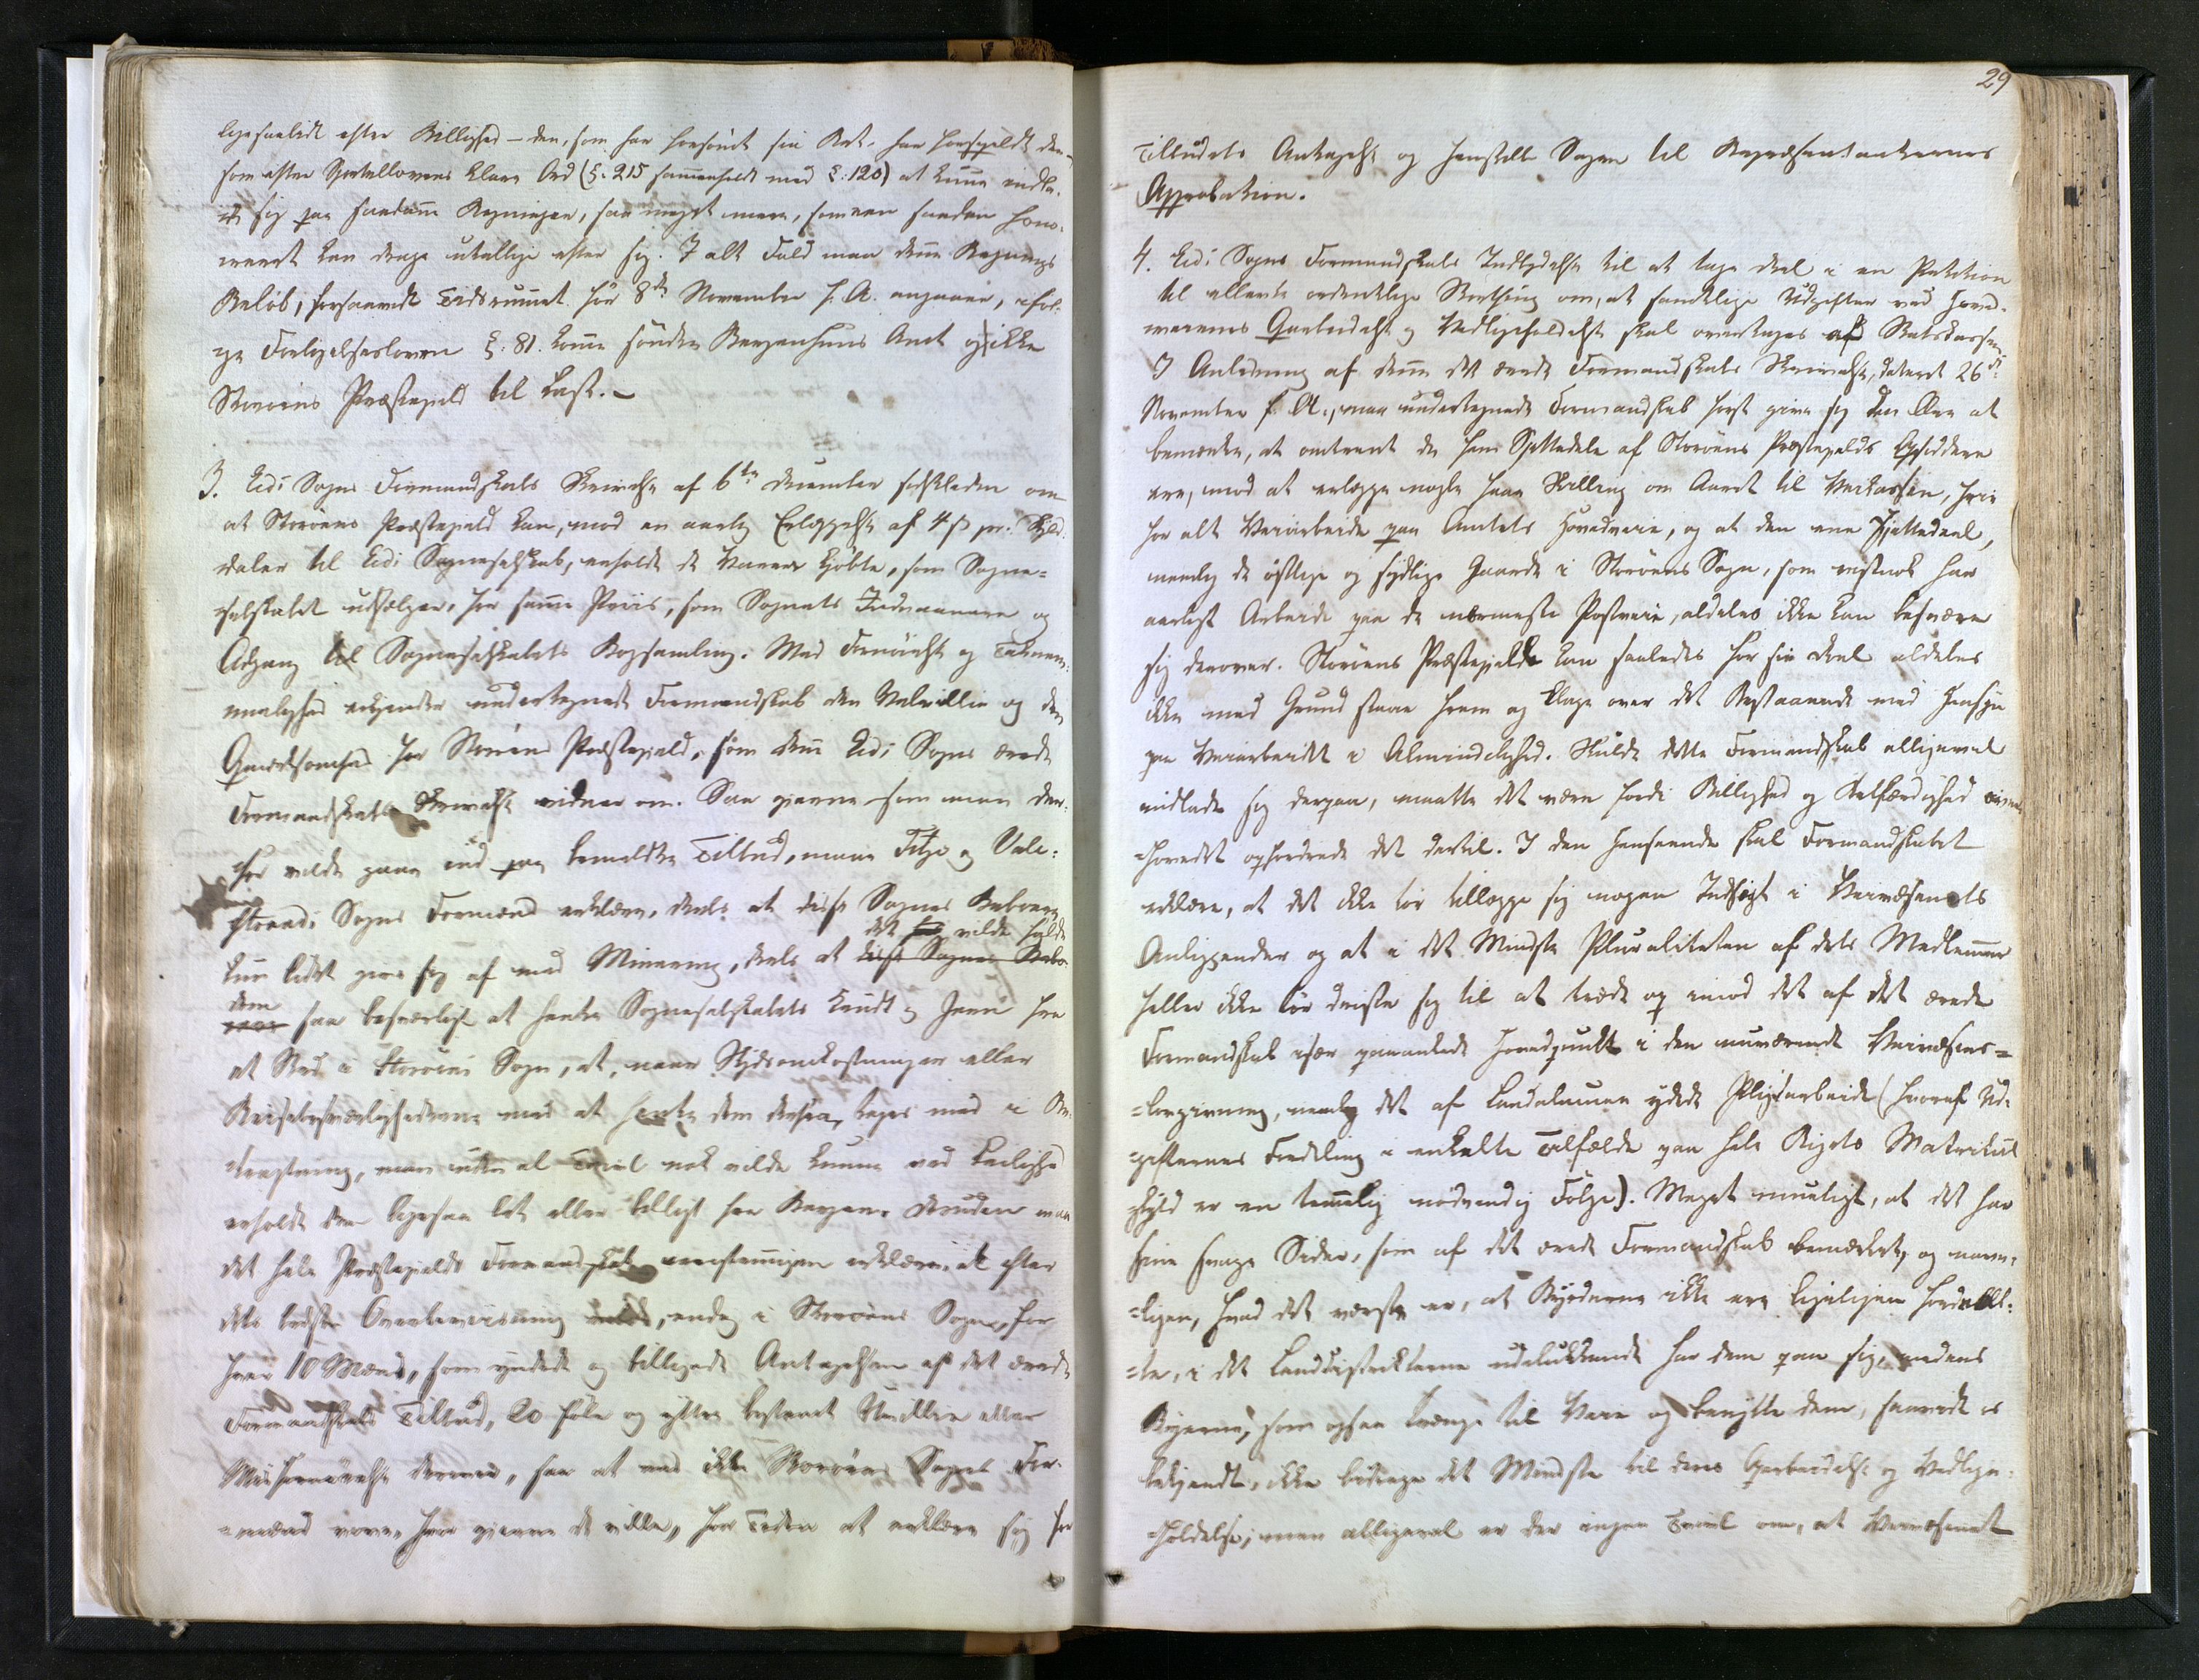 ligesaalidt efter Billighed – den, som har forsømt sin Ret, har forspildt den –
som efter Sportellovens klare Ord (§. 215 sammenholdt med §. 120) at kunne indla-
de sig paa saadanne Regninger, saa meget mere, som een saadan hono-
reret kan drage utallige efter sig. I alt Fald maa denne Regnings
Beløb, forsaavidt Tidsrummet før 8de November f. A. angaaer, iføl-
ge Forligelsesloven §. 81. komme søndre Bergenhuus Amt og ikke
Storøens Præstegjeld til Last. –
3. Eidi Sogns Formandskabs Skrivelse af 6te December sidstleden om
at Storøens Præstegjeld kan, mod en aarlig Erlæggelse af 4 ß pr. Skyld-
daler til Eidi Sogneselskab, erholde de Varer kjøbte, som Sogne-
selskabet udsælger, for samme Priis, som Sognets Indvaanere og
Adgang til Sogneselskabets Bogsamling. Med Fornøielse og Taknem-
melighed erkjender undertegnede Formandskab den Velvillie og den
Opmærksomhed for Storøens Præstegjeld, som den Eidi Sogns ærede
Formandskabs Skrivelse vidner om. Saa gjerne som man der-
for vilde gaae ind paa bemeldte Tilbud, maae Fitje og Vale-
strand Sogns Formænd erklære, deels at disse Sognes Beboere
kun lidet give sig af med Minering, deels at disse Sognes Bebo-
det vilde falde
dem saa besværligt at hente Sogneselskabets Krudt og Jern fra
et Sted i Storøens Sogn, at, naar Skydsomkostninger eller
Reisebesværlighederne med at hente dem derfra, tages med i Be-
tragtning, man uden al Tvivl nok vilde kunne ved Leilighed
erholde dem ligesaa let eller billigt fra Bergen. Desuden maa
det hele Præstegjelds Formandskab eenstemmigen erklære, at efter
dets bedste Overbeviisning, endog i Storøens Sogn, for
hver 10 Mænd, som yndede og billigede Antagelsen af det ærede
Formandskabs Tilbud, 20 føle og yttre bestemt Uvillie eller
Misfornøielse dermed, saa at end ikke Storøens Sogns For-
mænd vove, hvor gjerne de ville, for Tiden at erklære sig for
29
Tilbudets Antagelse og henstille Sagen til Repræsentanternes
Approbation.
4. Eidi Sogns Formandskabs Indbydelse til at tage Deel i en Petition
til allerede ordentlige Storthing om, at samtlige Udgifter ved Hoved-
veienes Oparbeidelse og Vedligeholdelse skal overtages af Statskassen.
I Anledning af denne det ærede Formandskabs Skrivelse, dateret 26de
November f. A., maa undertegnede Formandskab først give sig den Ære at
bemærke, at omtrent de fem Sjettedele af Storøens Præstegjelds Opsiddere
ere, mod at erlægge nogle faae Skilling om Aaret til Veikassen, frie
for alt Veiarbeide paa Amtets Hovedveie, og at den ene Sjettedeel,
nemlig de østlige og sydlige Gaarde i Storøens Sogn, som vistnok har
aarligt Arbeide paa de nærmeste Postveie, aldeles ikke kan besvære
sig derover. Storøens Præstegjeld kan saaledes for sin Deel aldeles
ikke med Grund staae frem og klage over det Bestaaende med Hensyn
paa Veiarbeidet i Almindelighed. Skulde dette Formandskab alligevel
indlade sig derpaa, maatte det være fordi Billighed og Retfærdighed oven-
hovedet opfordrede det dertil. I den Henseende skal Formandskabet
erklære, at det ikke tør tillægge sig nogen Indsigt i Veivæsenets
Anliggender og at i det Mindste Pluraliteten af dets Medlemmer
heller ikke tør driste sig til at træde op imod det af det ærede
Formandskab især paaankede Hovedpunkt i den nuværende Veivæsens-
lovgivning, nemlig det af Landalmuen ydede Pligtarbeide (hvoraf Ud-
gifternes Fordeling i enkelte Tilfælde paa hele Rigets Matrikul
skyld er en temmelig nødvendig Følge). Meget mueligt, at det har
sine svage Sider, som af det ærede Formandskab bemærket, og navn-
ligen, hvad det værste er, at Byrderne ikke ere ligeligen fordeel-
te, i det Landdistrikterne udelukkende har dem paa sig, medens
Byerne, som ogsaa trænge til Veie og benytte dem, saavidt os
bekjendt, ikke bidrage det Mindste til deres Oparbeidelse og Vedlige-
holdelse; men alligevel er der ingen Tvivl om, at Veivæsenet